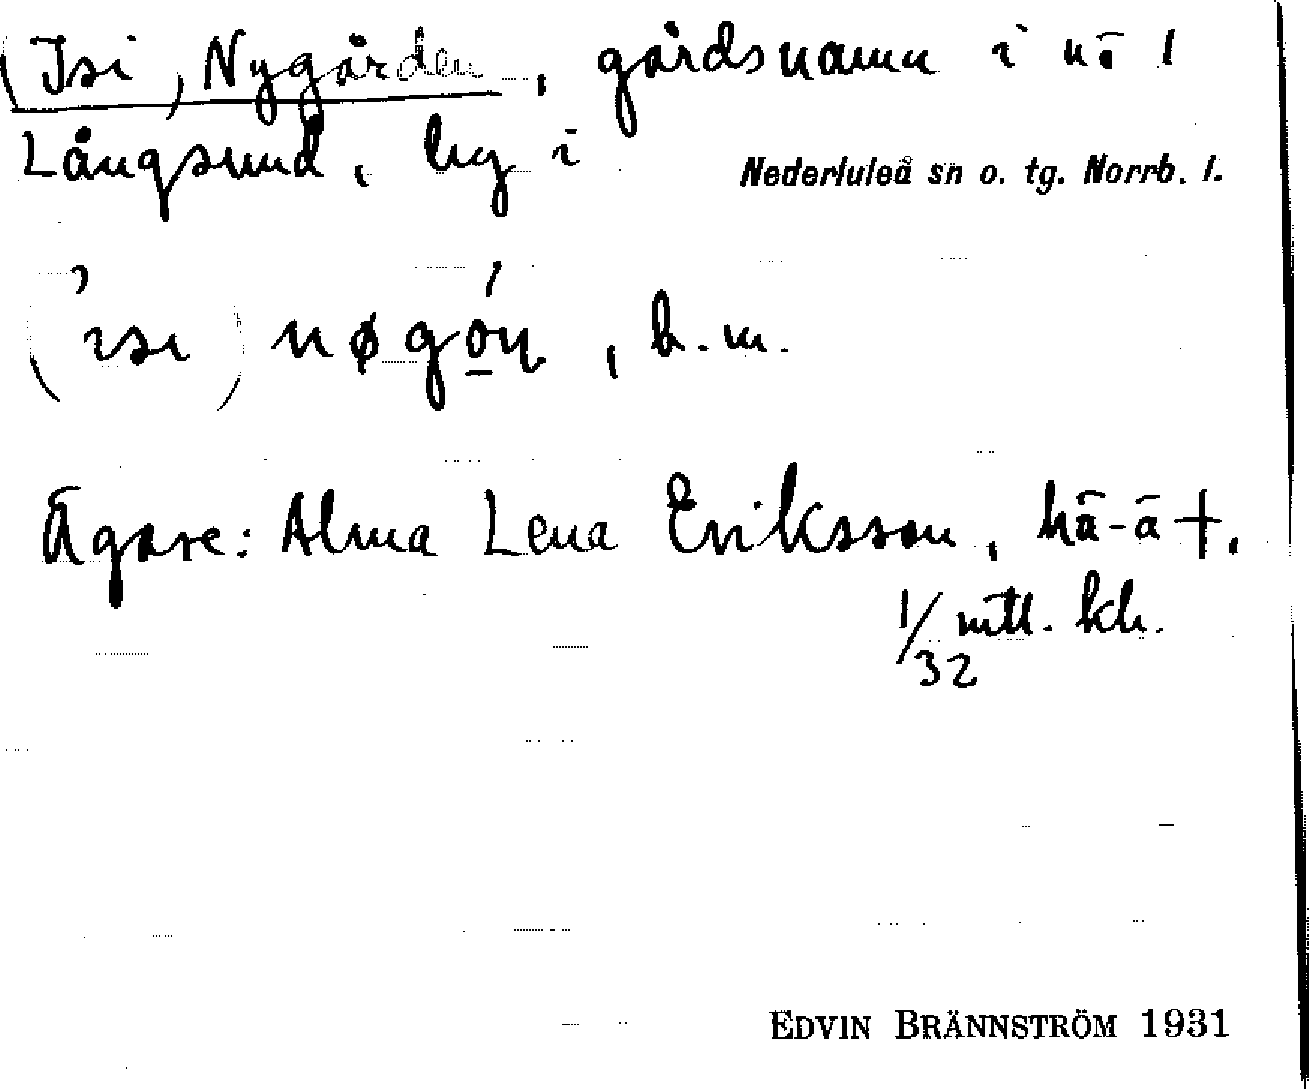 (Isi) Nygården, gårdsnamn i nö 1
Långsund, by i Nederluleå sn o. tg. Norrb. l.
('ɪsɪ) nøgó̱ɳ, b.m.
Ägare: Alma Lena Eriksson, hä-ä †.
1/32 mtl. kh.
EDVIN BRÄNNSTRÖM 1931